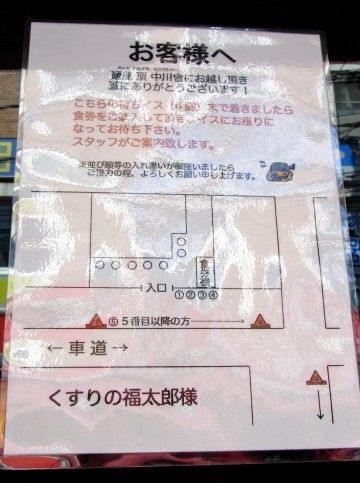 お客様へ
麺処 頂 中川會にお越し頂き
誠にありがとうございます！
こちらの待ちイス（4脚）まで着きましたら
食券をご購入して頂き、イスにお座りに
なってお待ち下さい。
スタッフがご案内致します。
※並び順等の入れ違いが御座いましたら
ご協力の程、よろしくお願い申し上げます。
食券機
入口
①②③④
⑤ 5番目以降の方
← 車道 →
くすりの福太郎様